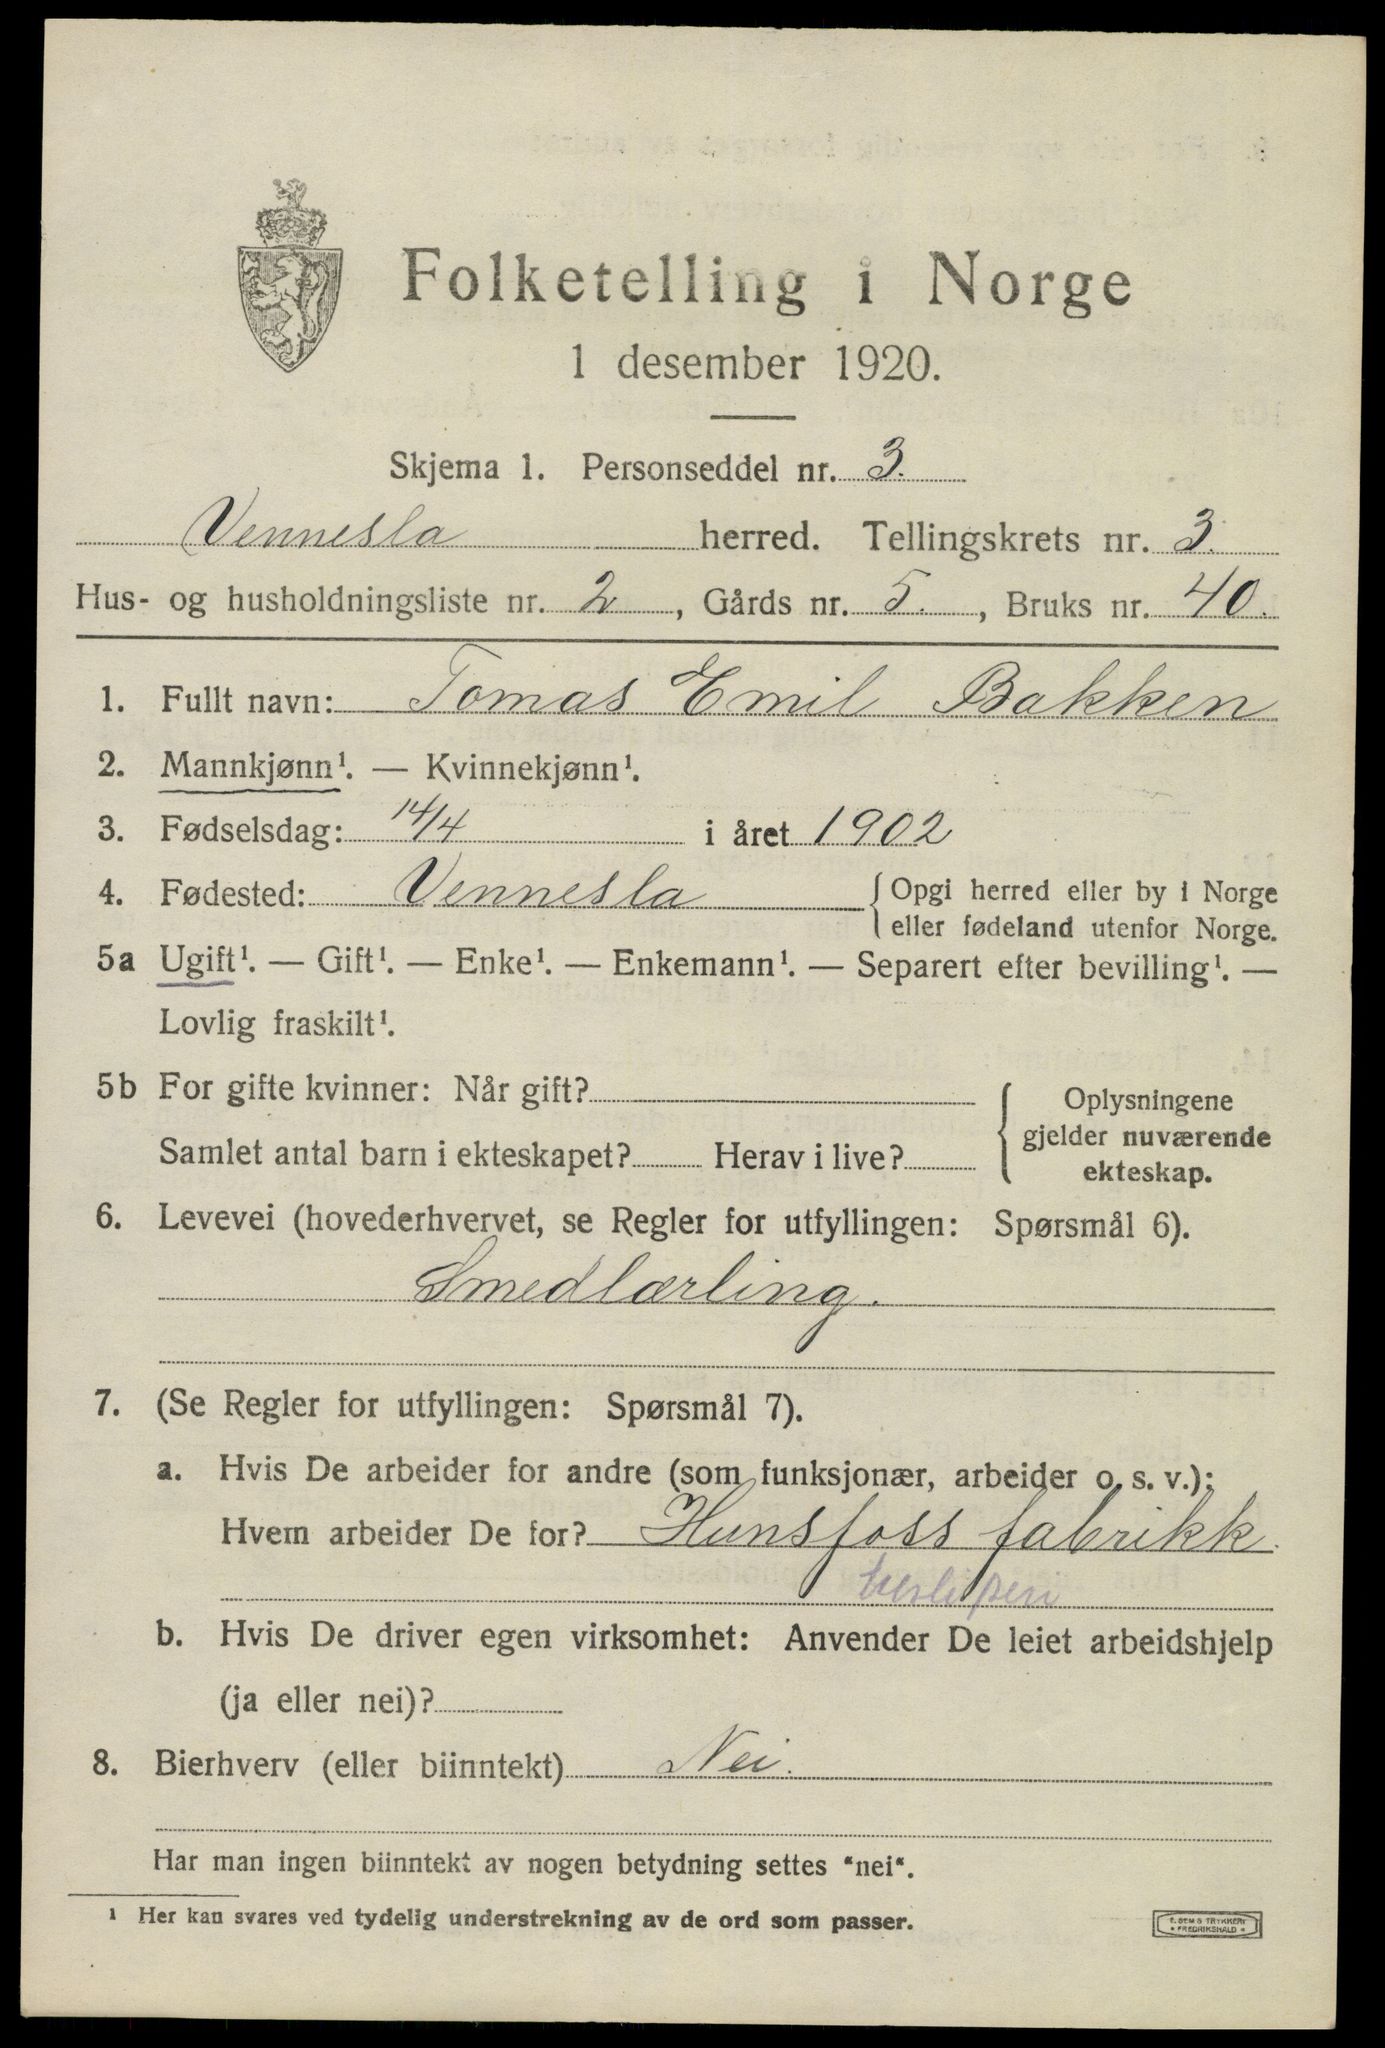 Folketelling i Norge
1 desember 1920.
Skjema 1. Personseddel nr. 3.
Vennesla herred. Tellingskrets nr. 3.
Hus- og husholdningsliste nr. 2, Gårds nr. 5., Bruks nr. 40.
1. Fullt navn: Tomas Emil Bakken
2. Mannkjønn¹. — Kvinnekjønn¹.
3. Fødselsdag: 14/4 i året 1902
4. Fødested: Vennesla { Opgi herred eller by i Norge
eller fødeland utenfor Norge.
5a Ugift¹. — Gift¹. — Enke¹. — Enkemann¹. — Separert efter bevilling¹. —
Lovlig fraskilt¹.
5b For gifte kvinner: Når gift?
Samlet antal barn i ekteskapet? Herav i live?
Oplysningene
gjelder nuværende
ekteskap.
6. Levevei (hovederhvervet, se Regler for utfyllingen: Spørsmål 6).
Smedlærling.
7. (Se Regler for utfyllingen: Spørsmål 7).
a. Hvis De arbeider for andre (som funksjonær, arbeider o. s. v.):
Hvem arbeider De for? Hunsfoss fabrikk.
b. Hvis De driver egen virksomhet: Anvender De leiet arbeidshjelp
(ja eller nei)?
8. Bierhverv (eller biinntekt) Nei.
Har man ingen biinntekt av nogen betydning settes "nei".
¹ Her kan svares ved tydelig understrekning av de ord som passer.
E. SEM S TRYKKERI
* FREDRIKSHALD *